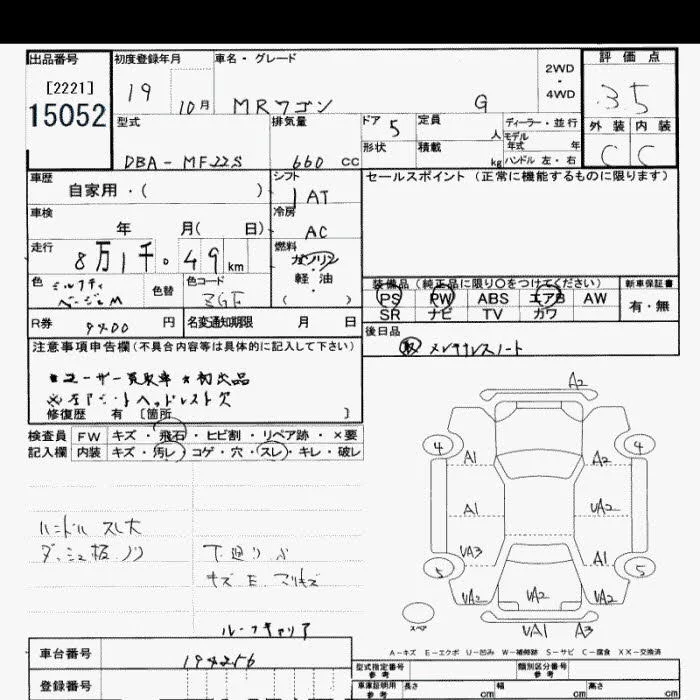 出品番号 初度登録年月 車名・グレード 2WD・4WD 評価点
[2221] 19 10月 MRワゴン G 35
15052
型式 排気量 ドア 5 定員 人 ディーラー・並行 外装 内装
形状 積載 kg モデル年式 年 C C
DBA-MF22S 660 CC ハンドル 左・右
車歴 シフト セールスポイント (正常に機能するものに限ります)
自家用・( ) AT
車検 冷房
年 月( 日) AC
走行 燃料
8万1千.49km ガソリン・軽油( )
色 色替 色コード 装備品 (純正品に限り○をつけてください) 新車保証書
ベージュM ZGF PS PW ABS エアB AW 有・無
SR ナビ TV カワ
R券 9400円 名変通知期限 月 日 後日品
取 メンテナンスノート
注意事項申告欄(不具合内容等は具体的に記入して下さい)
★ユーザー買取車 ★初出品
※左Fシートヘッドレスト欠
修復歴 有 [箇所 ]
検査員 FW キズ・飛石・ヒビ割・リペア跡・×要
記入欄 内装 キズ・汚レ・コゲ・穴・スレ・キレ・破レ
ハンドル スレ大
ダッシュ板 ノリ 下廻り サビ
キズ E
ルーフキャリア
A2
4 4
A1 A2
A1 UA2
UA3 A1
5 5
UA2 UA2 UA2
UA1 A3
スペア
A-キズ E-エクボ U-凹み W-補修跡 S-サビ C-腐食 XX-交換済
車台番号 194256
登録番号
型式指定番号 参考 類別区分番号 参考
車庫証明用 参考 長さ cm 幅 cm 高さ cm